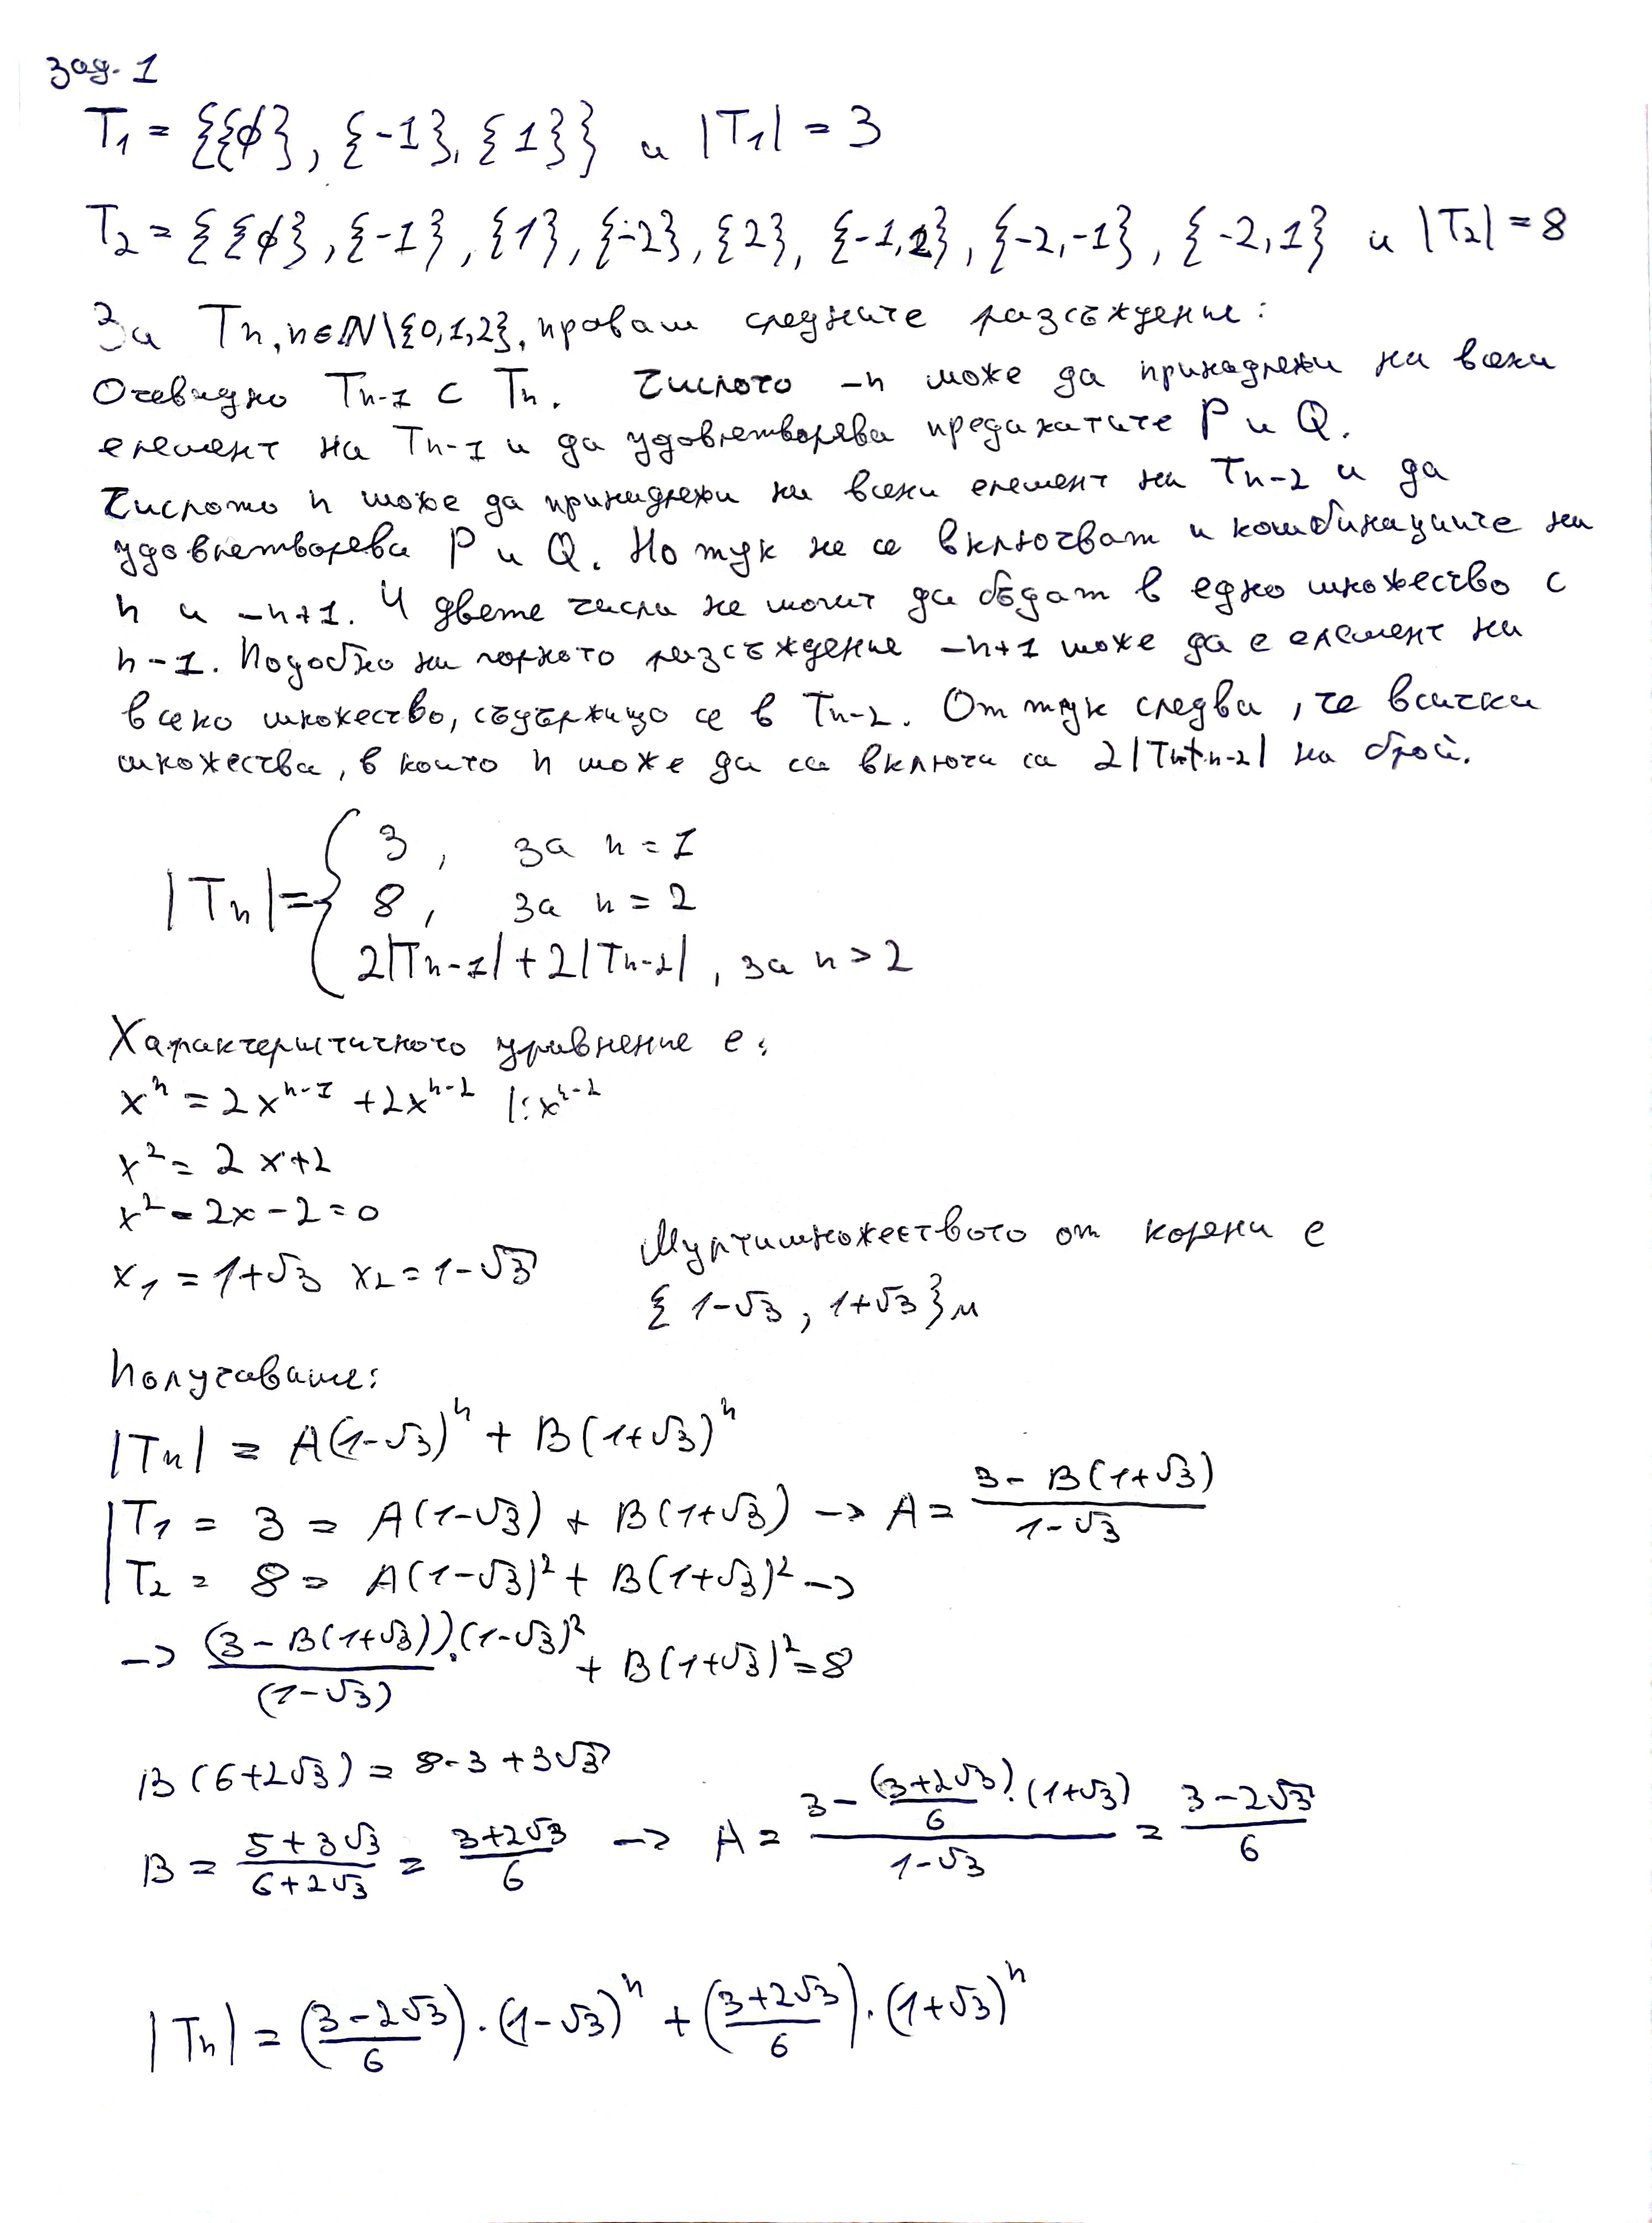 зад. 1
T₁ = {{∅}, {-1}, {1}} и |T₁| = 3
T₂ = {{∅}, {-1}, {1}, {-2}, {2}, {-1,2}, {-2,-1}, {-2,1} и |T₂| = 8
За Tn, n∈N\{0,1,2}, правам следните разсъждение:
Очевидно Tn-1 ⊂ Tn. Числото -n може да принадлежи на всеки
елемент на Tn-1 и да удовлетворява предикатите P и Q.
Числото n може да принадлежи на всеки елемент на Tn-2 и да
удовлетворява P и Q. Но тук не се включват и комбинациите на
n и -n+1. И двете числа не могат да бъдат в едно множество с
n-1. Подобно на горното разсъждение -n+1 може да е елемент на
всяко множество, съдържащо се в Tn-2. От тук следва, че всички
множества, в които n може да се включи са 2|Tn-2| на брой.
|Tn| = { 3, за n = 1
8, за n = 2
2|Tn-1| + 2|Tn-2|, за n > 2
Характеристичното уравнение е:
xⁿ = 2xⁿ⁻¹ + 2xⁿ⁻² |:xⁿ⁻²
x² = 2x+2
x² - 2x - 2 = 0
x₁ = 1+√3 x₂ = 1-√3
Мултимножеството от корени е
{1-√3, 1+√3}м
Получаваме:
|Tn| = A(1-√3)ⁿ + B(1+√3)ⁿ
T₁ = 3 = A(1-√3) + B(1+√3) → A = (3 - B(1+√3))/(1-√3)
T₂ = 8 = A(1-√3)² + B(1+√3)² →
→ (3 - B(1+√3)).(1-√3)²/(1-√3) + B(1+√3)² = 8
B(6+2√3) = 8-3+3√3
B = (5+3√3)/(6+2√3) = (3+2√3)/6 → A = (3 - ((3+2√3)/6).(1+√3))/(1-√3) = (3-2√3)/6
|Tn| = ((3-2√3)/6).(1-√3)ⁿ + ((3+2√3)/6).(1+√3)ⁿ